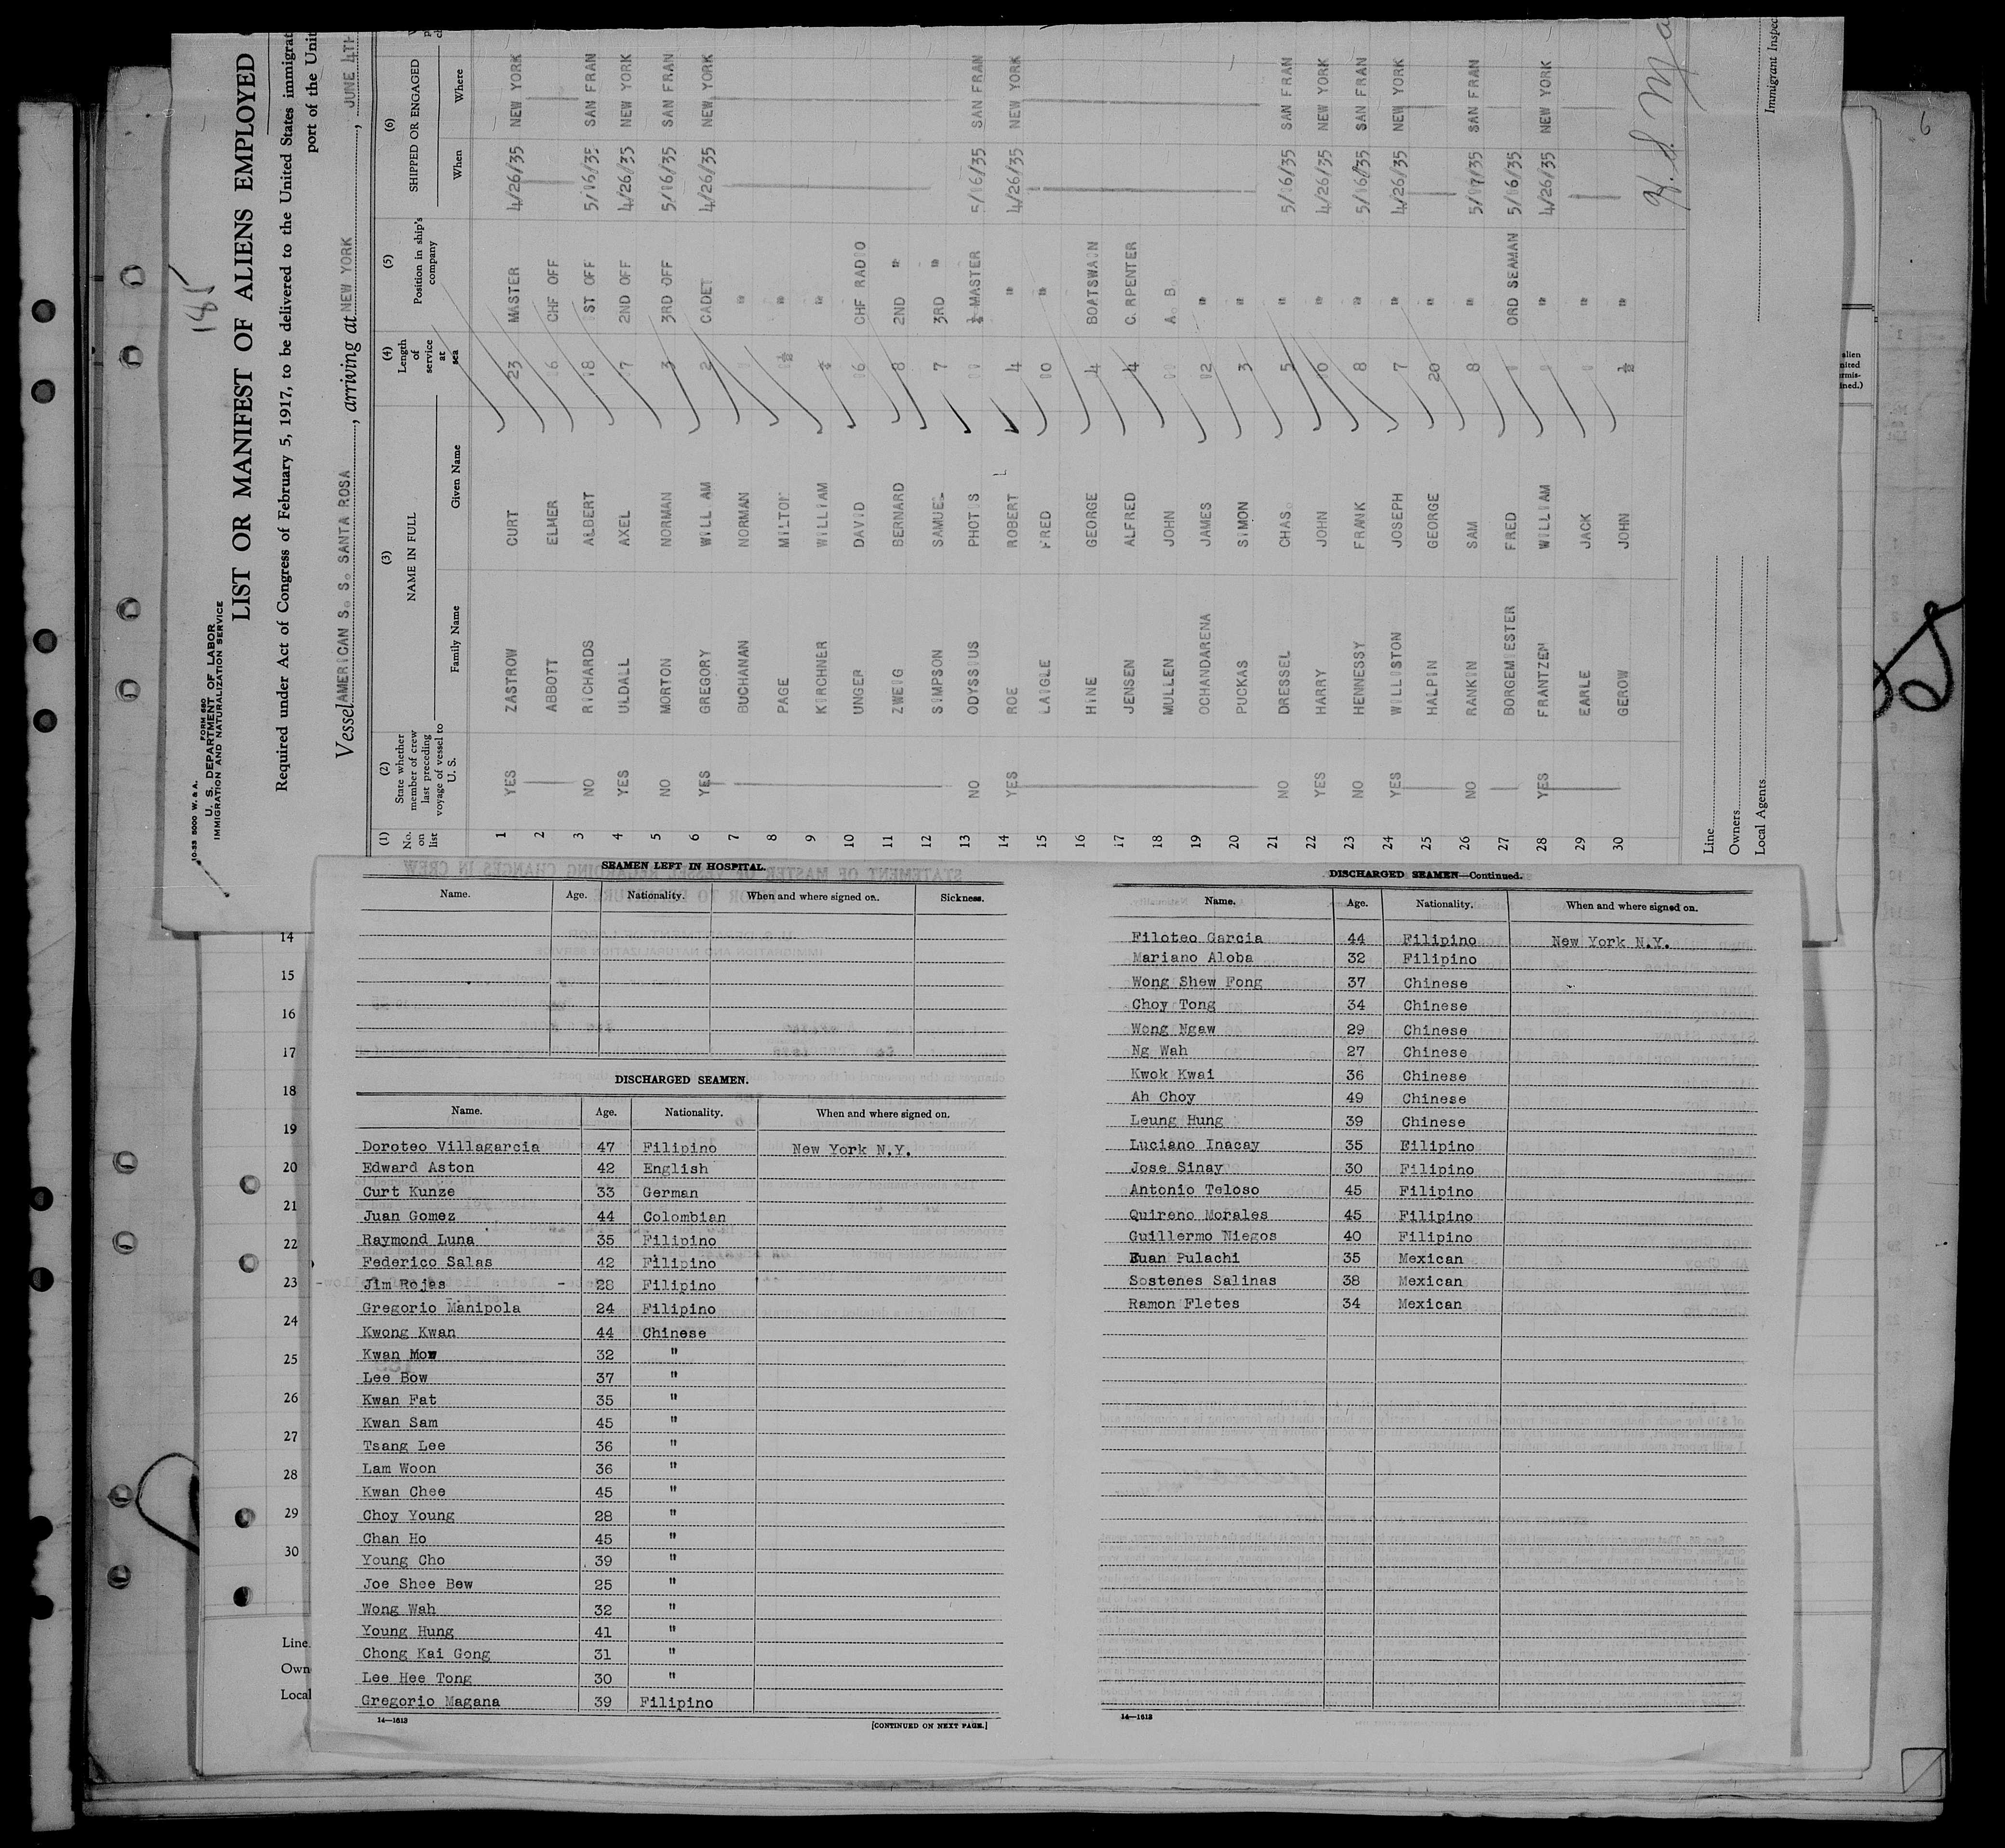 185
10-33 5000 W. & A.
FORM 680
U. S. DEPARTMENT OF LABOR
IMMIGRATION AND NATURALIZATION SERVICE
LIST OR MANIFEST OF ALIENS EMPLOYED
Required under Act of Congress of February 5, 1917, to be delivered to the United States immigrat
port of the Unit
Vessel AMERICAN S. S. SANTA ROSA, arriving at NEW YORK, JUNE 4TH
(1) (2) (3) (4) (5) (6)
No. on list
State whether member of crew last preceding voyage of vessel to U. S.
NAME IN FULL
Family Name Given Name
Length of service at sea
Position in ship's company
SHIPPED OR ENGAGED
When Where
1 YES ZASTROW CURT 23 MASTER 4/26/35 NEW YORK
2 ABBOTT ELMER 16 CHF OFF
3 NO RICHARDS ALBERT 18 1ST OFF 5/16/35 SAN FRAN
4 YES ULDALL AXEL 17 2ND OFF 4/26/35 NEW YORK
5 NO MORTON NORMAN 3 3RD OFF 5/16/35 SAN FRAN
6 YES GREGORY WILLIAM 2 CADET 4/26/35 NEW YORK
7 BUCHANAN NORMAN 1 "
8 PAGE MILTON 1½ "
9 KIRCHNER WILLIAM ½ "
10 UNGER DAVID 16 CHF RADIO
11 ZWEIG BERNARD 8 2ND "
12 SIMPSON SAMUEL 7 3RD "
13 NO ODYSSIUS PHOTIS 11 ¼ MASTER 5/16/35 SAN FRAN
14 YES ROE ROBERT 4 " 4/26/35 NEW YORK
15 LAIGLE FRED 10 "
16 HINE GEORGE 4 BOATSWAIN
17 JENSEN ALFRED 4 C.RPENTER
18 MULLEN JOHN 11 A. B.
19 OCHANDARENA JAMES 12 "
20 PUCKAS SIMON 3 "
21 NO DRESSEL CHAS. 5 " 5/16/35 SAN FRAN
22 YES HARRY JOHN 10 " 4/26/35 NEW YORK
23 NO HENNESSY FRANK 8 " 5/16/35 SAN FRAN
24 YES WILLISTON JOSEPH 7 " 4/26/35 NEW YORK
25 HALPIN GEORGE 20 "
26 NO RANKIN SAM 8 " 5/17/35 SAN FRAN
27 BORGEMIESTER FRED 1 ORD SEAMAN 5/16/35
28 YES FRANTZEN WILLIAM 1 " 4/26/35 NEW YORK
29 EARLE JACK 1 "
30 GEROW JOHN ½ "
Line
Owners
Local Agents
Immigrant Inspec
6
alien
nited
rmis-
ined.)
14
15
16
17
18
19
20
21
22
23
24
25
26
27
28
29
30
Line
Own
Local
SEAMEN LEFT IN HOSPITAL.
Name. Age. Nationality. When and where signed on. Sickness.
DISCHARGED SEAMEN.
Name. Age. Nationality. When and where signed on.
Doroteo Villagarcia 47 Filipino New York N.Y.
Edward Aston 42 English
Curt Kunze 33 German
Juan Gomez 44 Colombian
Raymond Luna 35 Filipino
Federico Salas 42 Filipino
Jim Rojas 28 Filipino
Gregorio Manipola 24 Filipino
Kwong Kwan 44 Chinese
Kwan Mow 32 "
Lee Bow 37 "
Kwan Fat 35 "
Kwan Sam 45 "
Tsang Lee 36 "
Lam Woon 36 "
Kwan Chee 45 "
Choy Young 28 "
Chan Ho 45 "
Young Cho 39 "
Joe Shee Bew 25 "
Wong Wah 32 "
Young Hung 41 "
Chong Kai Gong 31 "
Lee Hee Tong 30 "
Gregorio Magana 39 Filipino
14—1613
[CONTINUED ON NEXT PAGE.]
DISCHARGED SEAMEN—Continued.
Name. Age. Nationality. When and where signed on.
Filoteo Garcia 44 Filipino New York N.Y.
Mariano Aloba 32 Filipino
Wong Shew Fong 37 Chinese
Choy Tong 34 Chinese
Wong Ngaw 29 Chinese
Ng Wah 27 Chinese
Kwok Kwai 36 Chinese
Ah Choy 49 Chinese
Leung Hung 39 Chinese
Luciano Inacay 35 Filipino
Jose Sinay 30 Filipino
Antonio Teloso 45 Filipino
Quireno Morales 45 Filipino
Guillermo Niegos 40 Filipino
Euan Pulachi 35 Mexican
Sostenes Salinas 38 Mexican
Ramon Fletes 34 Mexican
14—1613